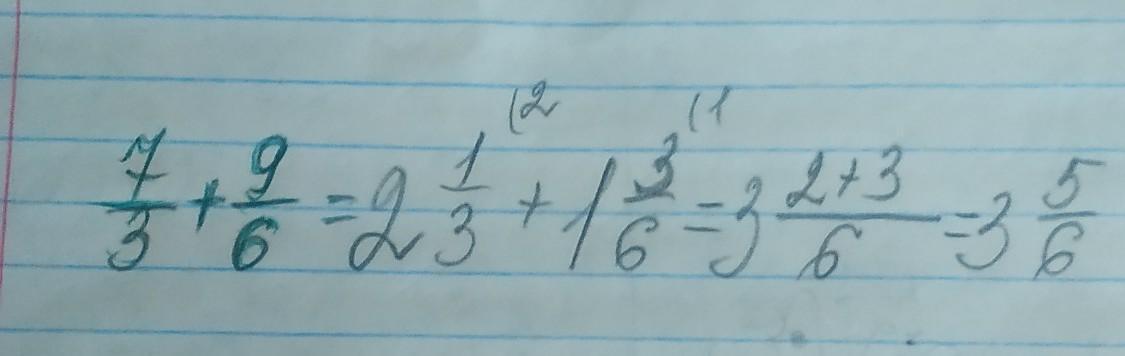 7/3 + 9/6 = 2 1/3 (2 + 1 3/6 (1 = 3 2+3/6 = 3 5/6